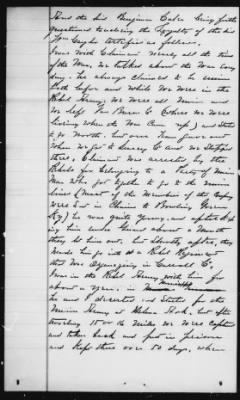 And the said Benjamin Cole being further
questioned touching the loyalty of the said
testifies as follows.
I was with Claimant nearly all the time
of the War, we talked about the War every
day. he always claimed to be union
both before and while We were in the
Rebel Army, We were all Union and
We left Van Buren Co where We were
living when the War and started
to go North. but our gave out
When We got to Searcy C and we stopped
there, Claimant Was arrested by the
Rebels for belonging to a Party of Union
men who got together to go to the union
lines (most of the members of the Company
were in Claims to Bowling Green
Ky) he was quite young, and after keep
ing him under Guard about a Month
they let him out, but shortly after, they
made him go into a Rebel Regiment
that Was Organizing in Carroll Co.
I was in the Rebel Army with him for
about a year.
he and I deserted and started for the
Union Army at Helena Ark. but after
traveling 15 or 16 Miles we were captured
and taken back and put in prison
and kept there over 50 days, when